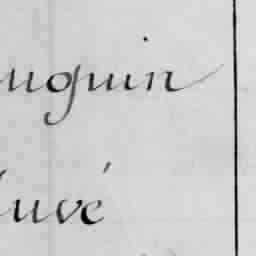 uguin
uvé